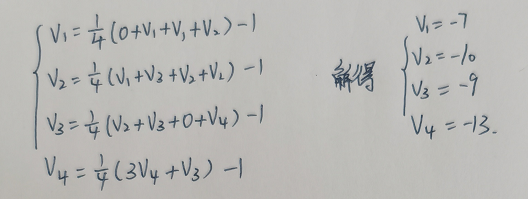 V₁ = 1/4 (0 + V₁ + V₁ + V₂) - 1
V₂ = 1/4 (V₁ + V₃ + V₂ + V₂) - 1
V₃ = 1/4 (V₂ + V₃ + 0 + V₄) - 1
V₄ = 1/4 (3V₄ + V₃) - 1
解得
V₁ = -7
V₂ = -10
V₃ = -9
V₄ = -13.